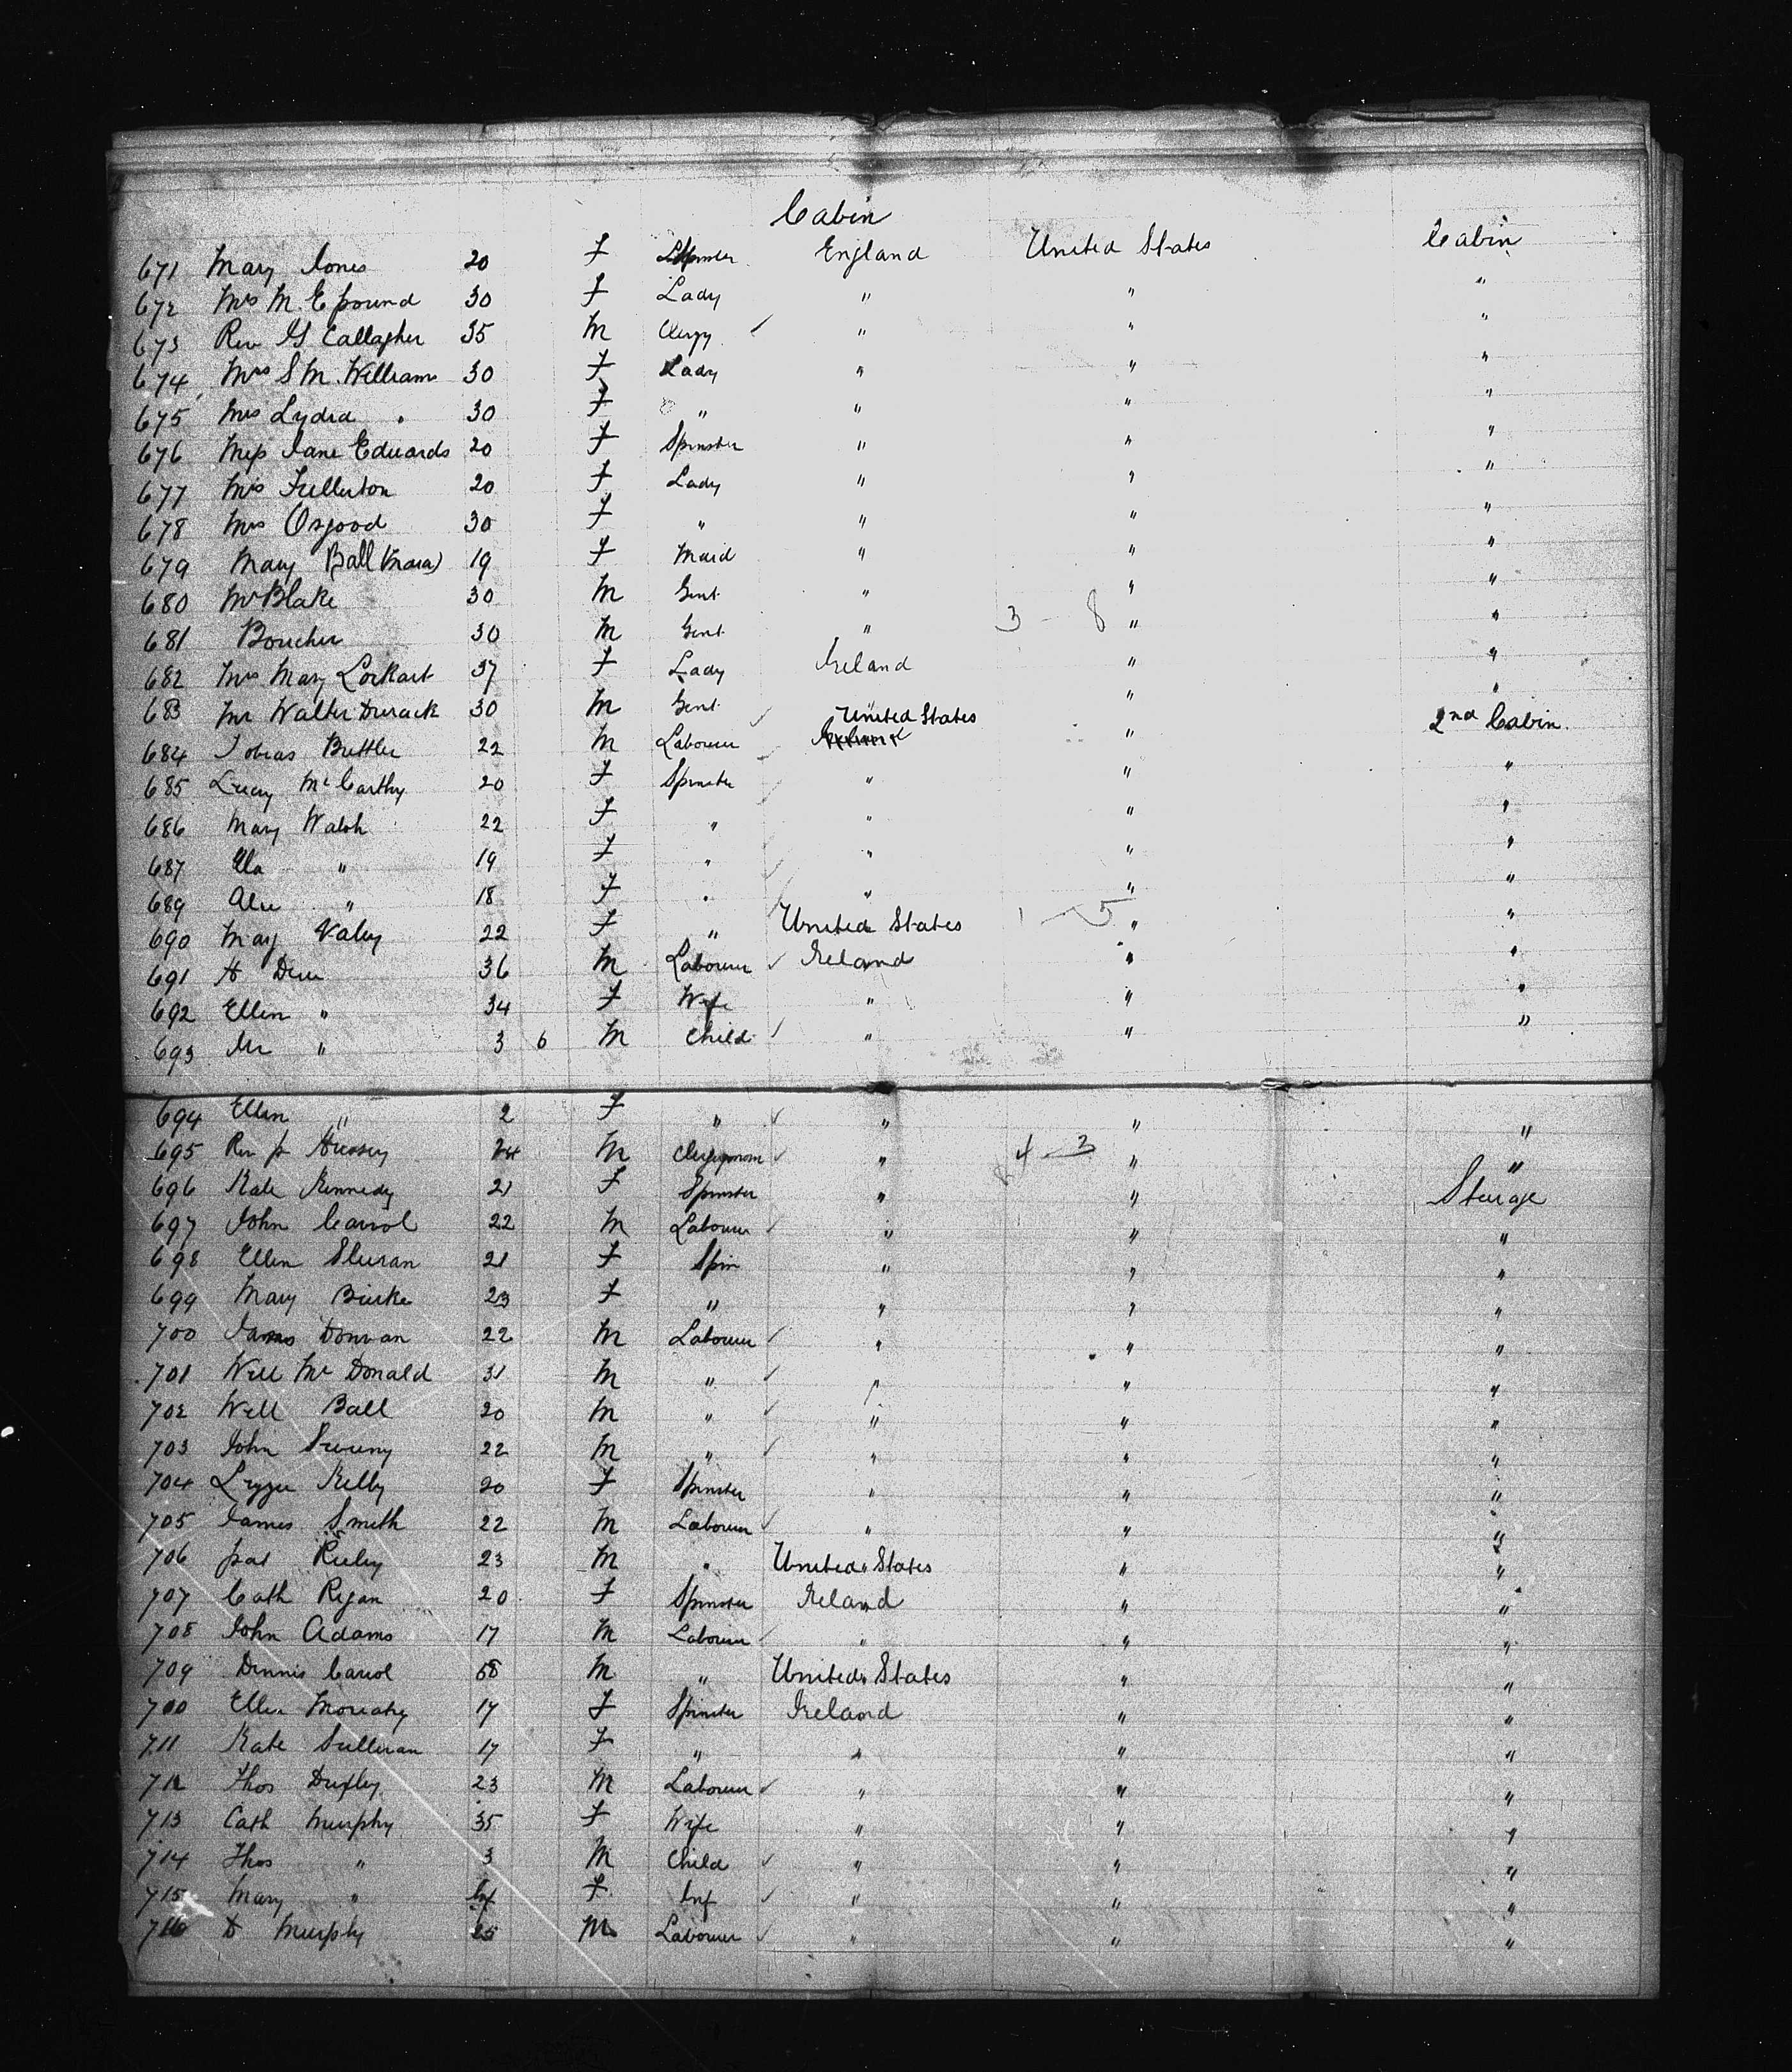 Cabin
671 Mary Jones 20 F Spinster England United States Cabin
672 Mrs M. E pound 30 F Lady " " "
673 Rev G Callagher 35 M Clergy " " "
674 Mrs S M. William 30 F Lady " " "
675 Mrs Lydia " 30 F " " " "
676 Miss Jane Edwards 20 F Spinster " " "
677 Mrs Fullerton 20 F Lady " " "
678 Mrs Osgood 30 F " " " "
679 Mary Ball 19 F Maid " " "
680 Mr Blake 30 M Gent " " "
681 Boucher 30 M Gent " 3 - 8 " "
682 Mrs Mary Lockart 37 F Lady Ireland " "
683 Mr Walter Durack 30 M Gent " " "
684 Tobias Buttler 22 M Labourer United States " 2nd Cabin
685 Lucy McCarthy 20 F Spinster " " "
686 Mary Walsh 22 F " " " "
687 Ela " 19 F " " " "
689 Alice " 18 F " " " "
690 Mary 22 F " United States 1 - 5 " "
691 H 36 M Labourer Ireland " "
692 Ellen " 34 F Wife " " "
693 " 3 6 M Child " " "
694 Ellen " 2 F " " " "
695 Rev p Hussey 24 M Clergyman " 4 - 3 " "
696 Kate Kennedy 21 F Spinster " " Steerage
697 John Carrol 22 M Labourer " " "
698 Ellen 21 F Spin " " "
699 Mary Burke 23 F " " " "
700 James Donvan 22 M Labourer " " "
701 Will McDonald 31 M " " " "
702 Will Ball 20 M " " " "
703 John Sweeny 22 M " " " "
704 Lizzie Kelly 20 F Spinster " " "
705 James Smith 22 M Labourer " " "
706 pat Rieley 23 M " United States " "
707 Cath Regan 20 F Spinster Ireland " "
708 John Adams 17 M Labourer " " "
709 Dennis Carrol 58 M " United States " "
700 Ellen Moriaty 17 F Spinster Ireland " "
711 Kate Sullivan 17 F " " " "
712 Thos 23 M Labourer " " "
713 Cath Murphy 35 F Wife " " "
714 Thos " 3 M Child " " "
715 Mary " Inf F Inf " " "
716 D Murphy 25 M Labourer " " "